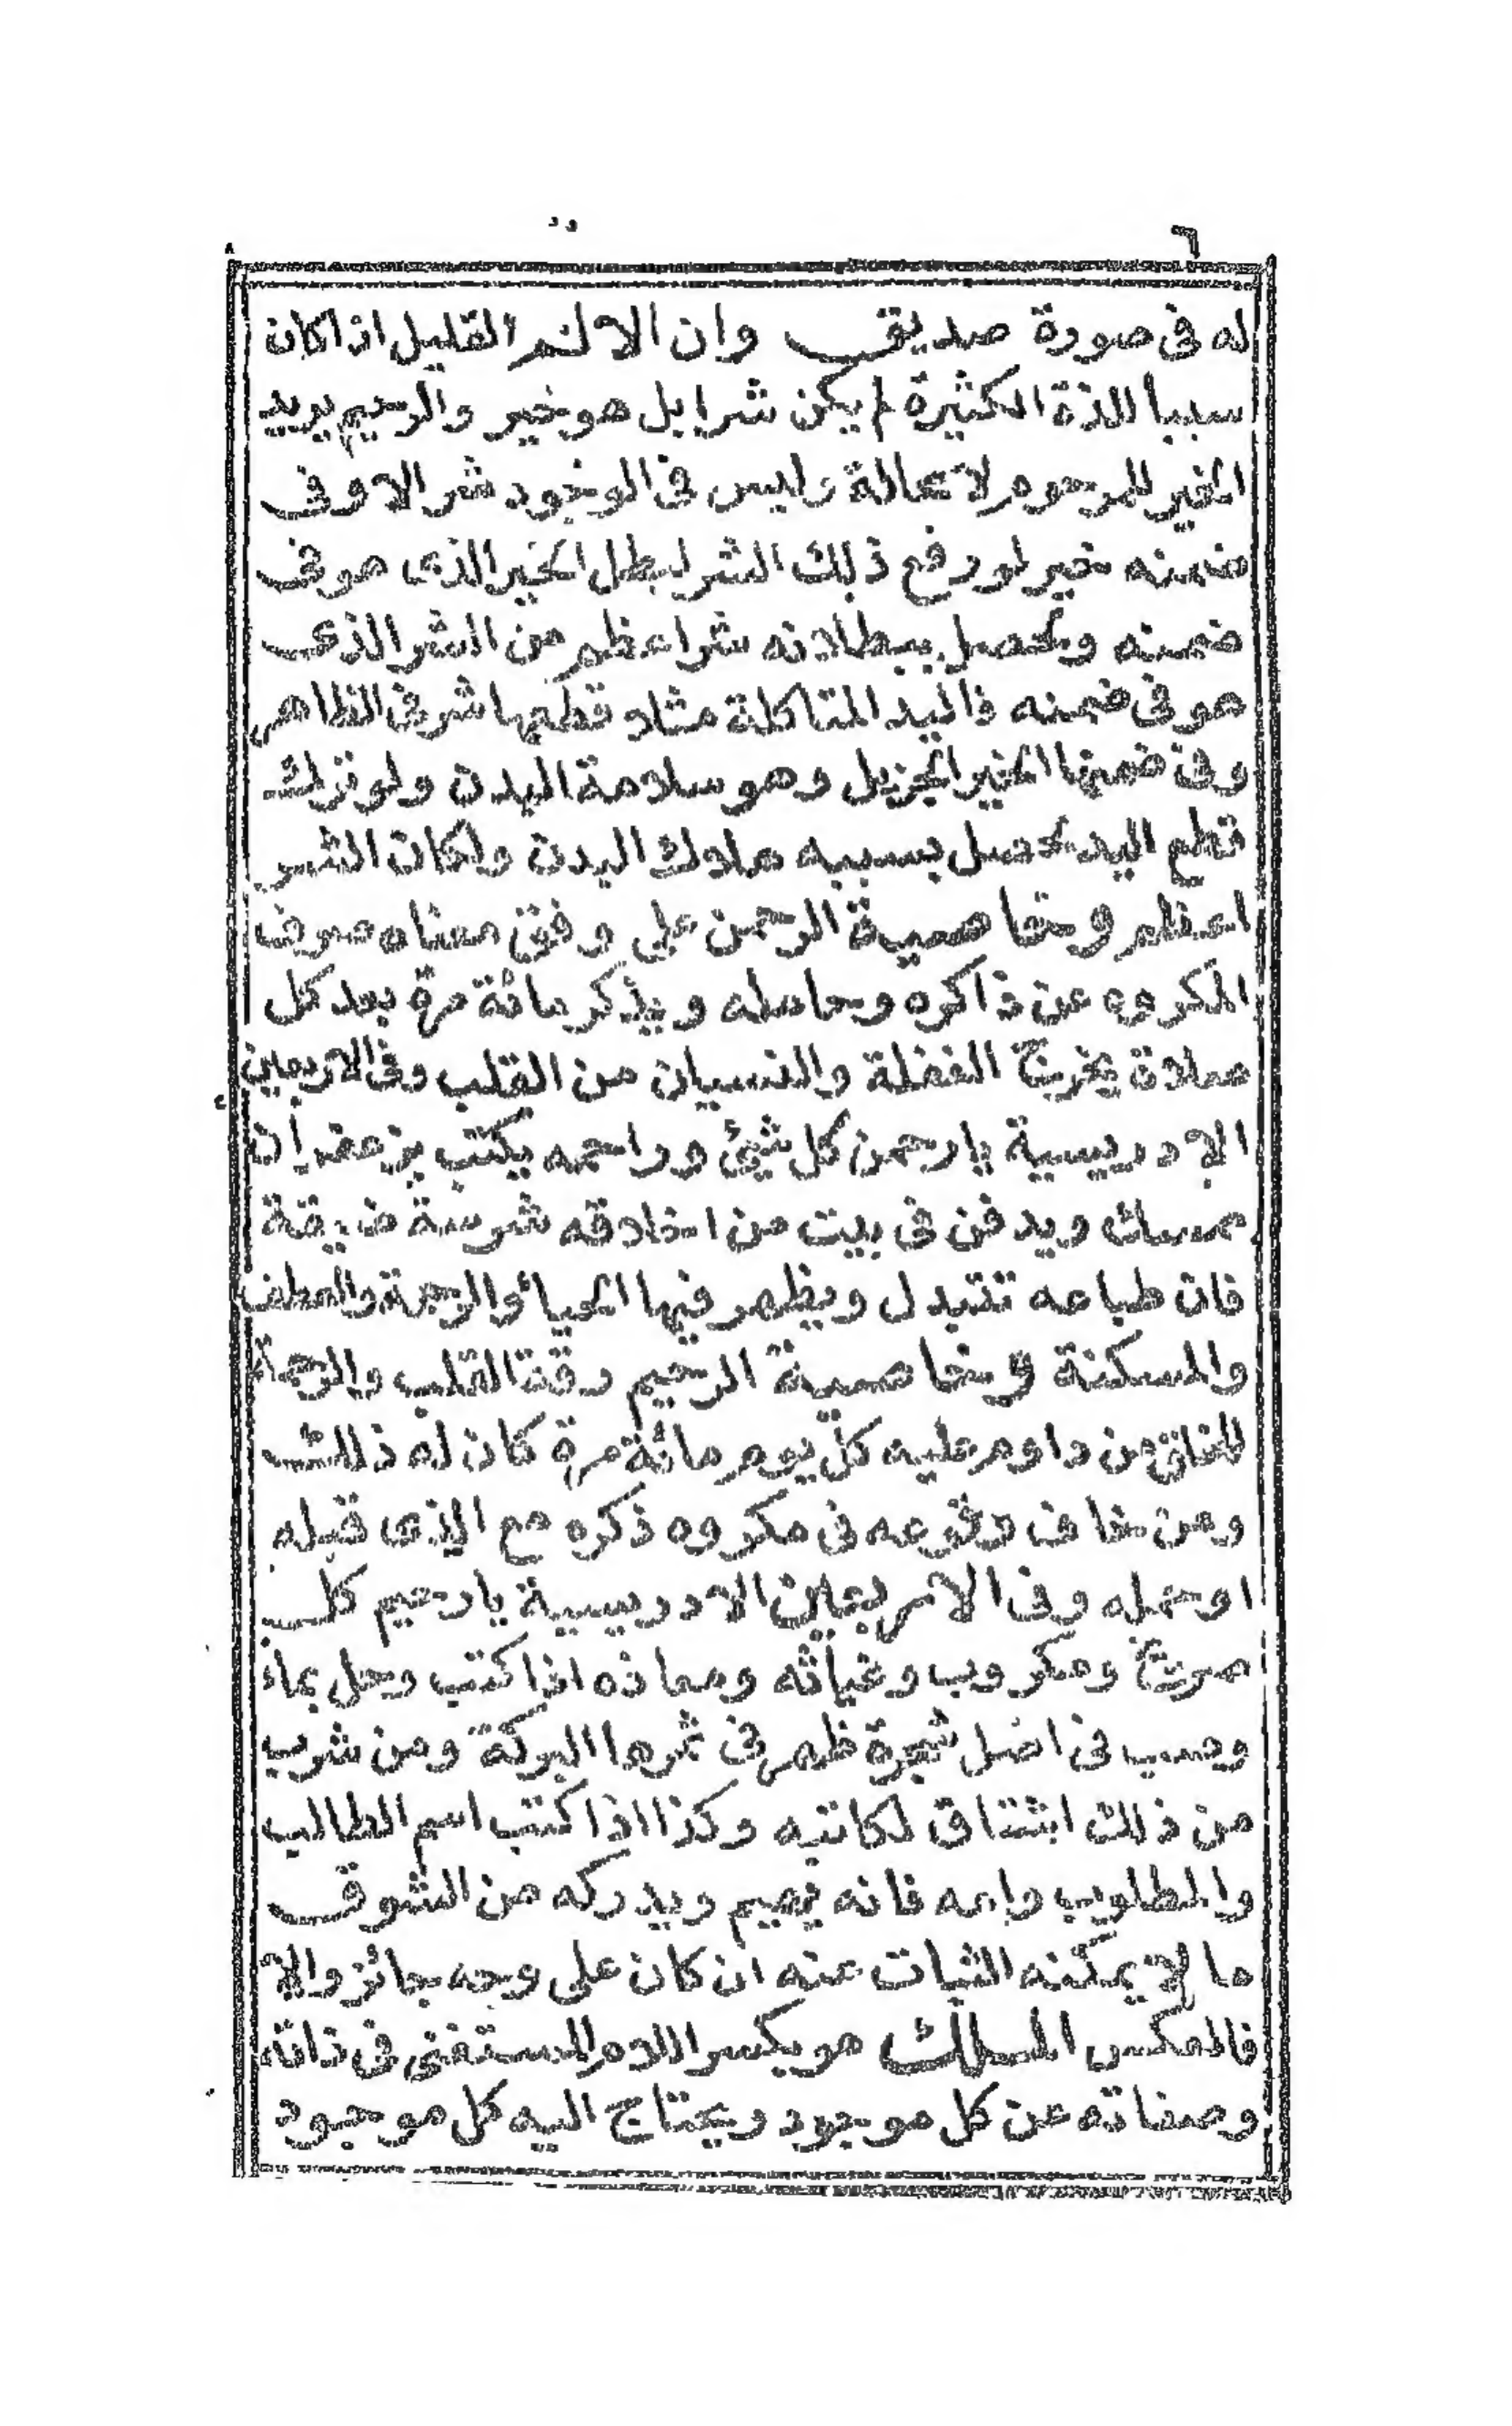 ٦
له فى صورة صديق وان الالم القليل اذا كان
سببا للذة الكثيرة لم يكن شرا بل هو خير والرحيم يريد
الخير للمرحوم لا محالة وليس فى الوجود شر الا وفى
ضمنه خير لو رفع ذلك الشر لبطل الخير الذى هو فى
ضمنه ويحصل ببطلانه شرا عظم من الشر الذى
هو فى ضمنه فاليد المتاكلة مثلا قطعها شر فى الظاهر
وفى ضمنها الخير الجزيل وهو سلامة البدن ولو ترك
قطع اليد لحصل بسببه هلاك البدن ولكان الشر
اعظم وخاصية الرحمن على وفق معناه صرف
المكروه عن ذاكره وحامله ويذكر مائة مرة بعد كل
صلاة يخرج الغفلة والنسيان من القلب وفى الاربعين
الادريسية يارحمن كل شئ وراحمه يكتب بزعفران
ومسك ويدفن فى بيت من اخلاقه شرسة ضيقة
فان طباعه تتبدل ويظهر فيها الحياء والرحمة والعطف
والمسكنة وخاصية الرحيم رقة القلب والرحمة
للخلق من داوم عليه كل يوم مائة مرة كان له ذلك
ومن خاف وقوعه فى مكروه ذكره مع الذى قبله
او حمله وفى الاربعين الادريسية يارحيم كل
صريخ ومكروب وغياثه ومعاذه اذا كتب وحل بماء
وصب فى اصل شجرة ظهر فى ثمرها البركة ومن شرب
من ذلك اشتاق لكاتبه وكذا اذا كتب اسم الطالب
والمطلوب وامه فانه يهيم ويدركه من الشوق
ما لا يمكنه الثبات عنه ان كان على وجه جائز والا
فالعكس الملك هو بكسر اللام المستغنى فى ذاته
وصفاته عن كل موجود ويحتاج اليه كل موجود